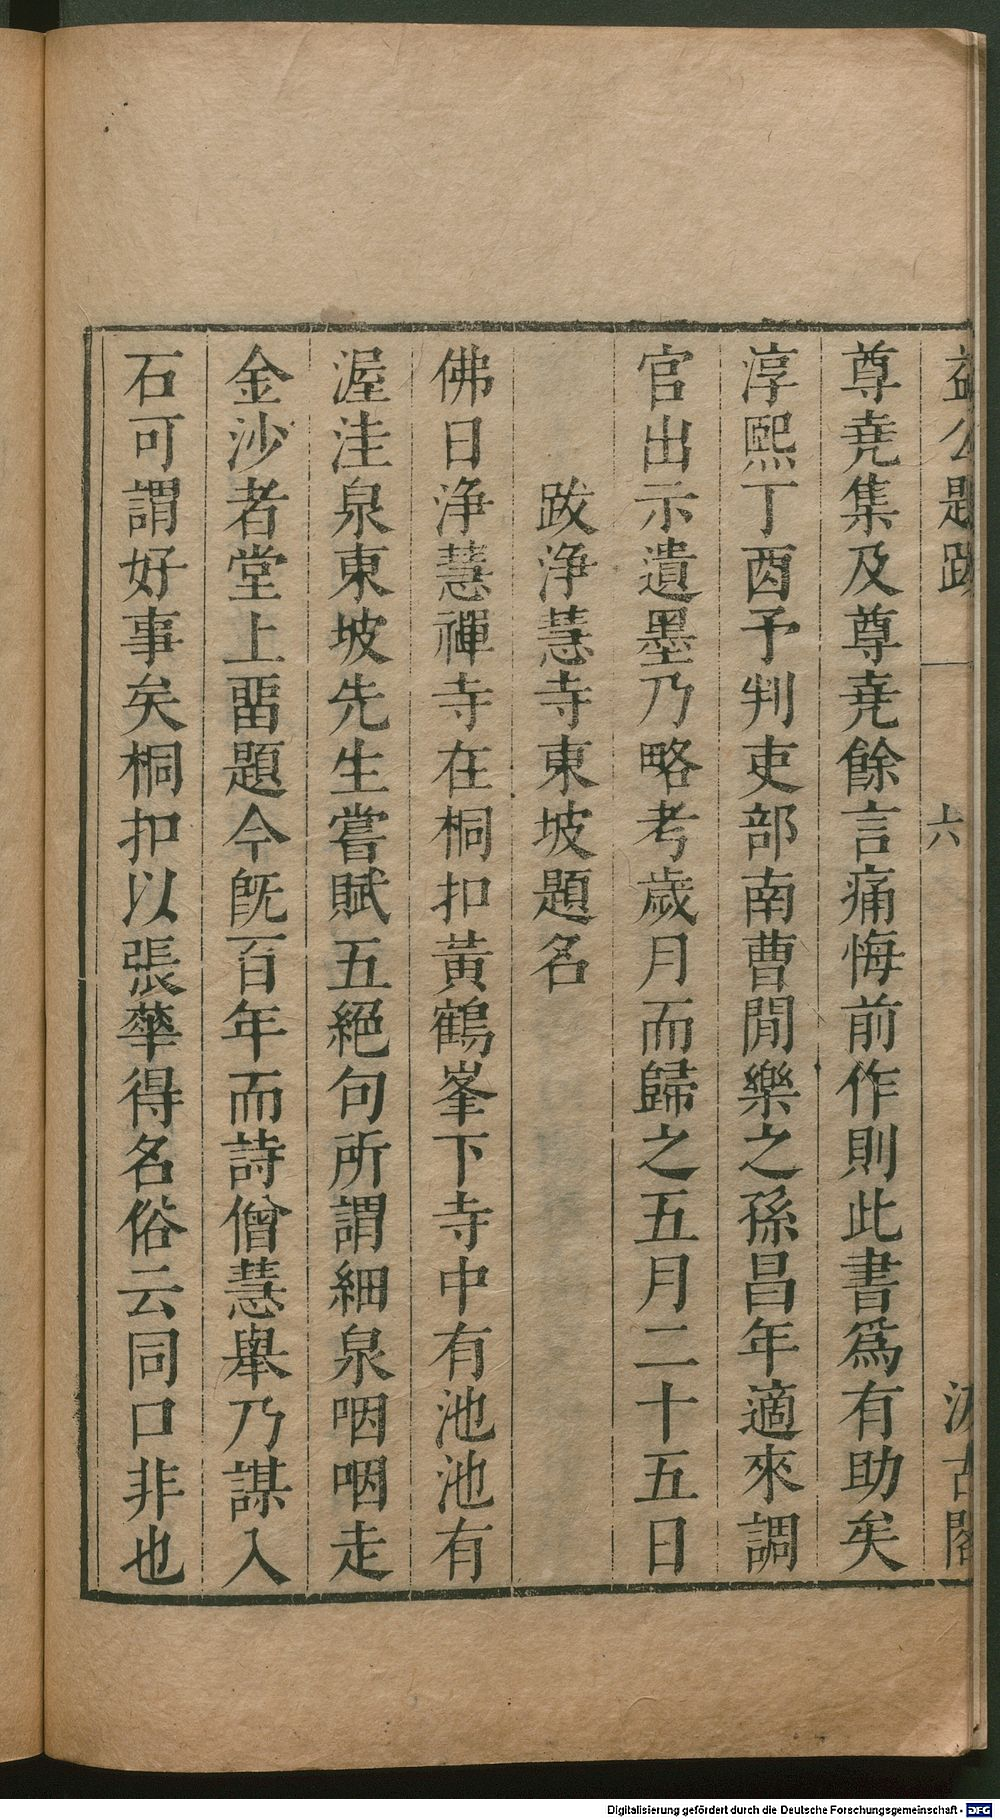 益公題跋
六
汲古閣
尊堯集及尊堯餘言痛悔前作則此書爲有助矣
淳熙丁酉予判吏部南曹閒樂之孫昌年適來調
官出示遺墨乃略考歲月而歸之五月二十五日
跋浄慧寺東坡題名
佛日浄慧禪寺在桐扣黃鶴峯下寺中有池池有
渥洼泉東坡先生嘗賦五絕句所謂細泉咽咽走
金沙者堂上畱題今旣百年而詩僧慧舉乃謀入
石可謂好事矣桐扣以張華得名俗云同口非也
Digitalisierung gefördert durch die Deutsche Forschungsgemeinschaft - DFG